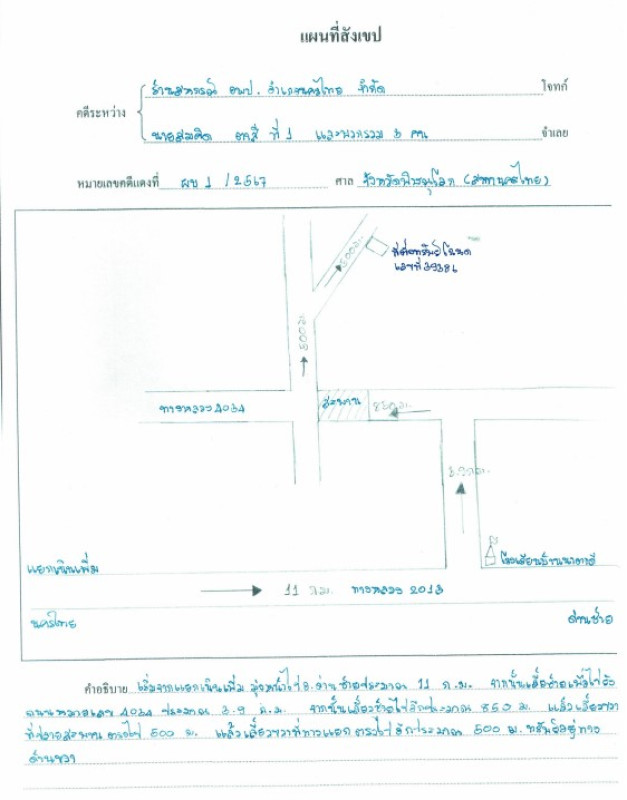 แผนที่สังเขป
ร้านสหกรณ์ อบป. อำเภอนครไทย จำกัด โจทก์
คดีระหว่าง
นายสมคิด ที่ 1 และพวกรวม 3 คน จำเลย
หมายเลขคดีแดงที่ ผบ 1 /2567 ศาล จังหวัดพิษณุโลก (สาขานครไทย)
500 ม.
ที่ตั้งทรัพย์โฉนด
เลขที่ 39386
500 ม.
ทางหลวง 4034
สะพาน
850 ม.
3.9 ก.ม.
โรงเรียนบ้านนาตาดี
แยกเนินเพิ่ม
11 ก.ม. ทางหลวง 2013
นครไทย
ด่านซ้าย
คำอธิบาย เริ่มจากแยกเนินเพิ่ม มุ่งหน้าไป อ.ด่านซ้ายประมาณ 11 ก.ม. จากนั้นเลี้ยวซ้ายเพื่อไปยัง
ถนนหมายเลข 4034 ประมาณ 3.9 ก.ม. จากนั้นเลี้ยวซ้ายไปอีกประมาณ 850 ม. แล้วเลี้ยวขวา
ที่ปลายสะพาน ตรงไป 500 ม. แล้วเลี้ยวขวาที่ทางแยก ตรงไปอีกประมาณ 500 ม. ทรัพย์อยู่ทาง
ด้านขวา